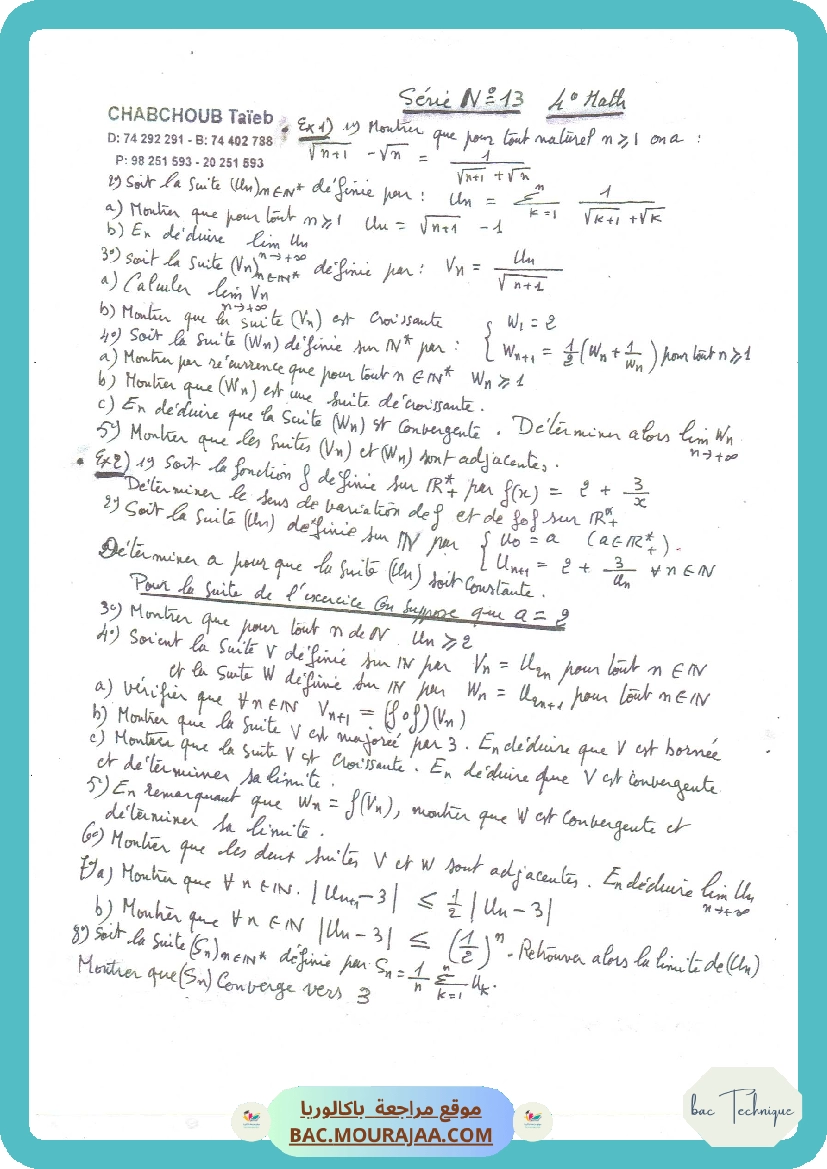 Série N°13 4° Math
CHABCHOUB Taïeb
D: 74 292 291 - B: 74 402 788
P: 98 251 593 - 20 251 593
Ex 1) 1°) Montrer que pour tout naturel n ≥ 1 on a :
√(n+1) - √n = 1/(√(n+1) + √n)
2°) Soit la suite (Un)n∈IN* définie par : Un = Σ(k=1 à n) 1/(√(k+1) + √k)
a) Montrer que pour tout n ≥ 1 Un = √(n+1) - 1
b) En déduire lim Un n→+∞
3°) Soit la suite (Vn)n∈IN* définie par : Vn = Un/√(n+1)
a) Calculer lim Vn n→+∞
b) Montrer que la suite (Vn) est croissante
4°) Soit la suite (Wn) définie sur IN* par : { W1 = 2
Wn+1 = 1/2 (Wn + 1/Wn) pour tout n ≥ 1
a) Montrer par récurrence que pour tout n ∈ IN* Wn ≥ 1
b) Montrer que (Wn) est une suite décroissante.
c) En déduire que la suite (Wn) est convergente. Déterminer alors lim Wn n→+∞
5°) Montrer que les suites (Vn) et (Wn) sont adjacentes.
Ex 2) 1°) Soit la fonction f définie sur IR*+ par f(x) = 2 + 3/x
Déterminer le sens de variation de f et de fof sur IR*+
2°) Soit la suite (Un) définie sur IN par { U0 = a (a ∈ IR*+).
Un+1 = 2 + 3/Un ∀ n ∈ IN
Déterminer a pour que la suite (Un) soit constante.
Pour la suite de l'exercice on suppose que a = 2
3°) Montrer que pour tout n de IN Un ≥ 2
4°) Soient la suite V définie sur IN par Vn = U2n pour tout n ∈ IN
et la suite W définie sur IN par Wn = U2n+1 pour tout n ∈ IN
a) Vérifier que ∀ n ∈ IN Vn+1 = (fof)(Vn)
b) Montrer que la suite V est majorée par 3. En déduire que V est bornée
c) Montrer que la suite V est croissante. En déduire que V est convergente
et déterminer sa limite.
5°) En remarquant que Wn = f(Vn), montrer que W est convergente et
déterminer sa limite.
6°) Montrer que les deux suites V et W sont adjacentes. En déduire lim Un n→+∞
7°) a) Montrer que ∀ n ∈ IN. |Un+1 - 3| ≤ 1/2 |Un - 3|
b) Montrer que ∀ n ∈ IN |Un - 3| ≤ (1/2)^n. Retrouver alors la limite de (Un)
8°) Soit la suite (Sn)n∈IN* définie par Sn = 1/n Σ(k=1 à n) Uk.
Montrer que (Sn) converge vers 3
bac Technique
موقع مراجعة باكالوريا
BAC.MOURAJAA.COM